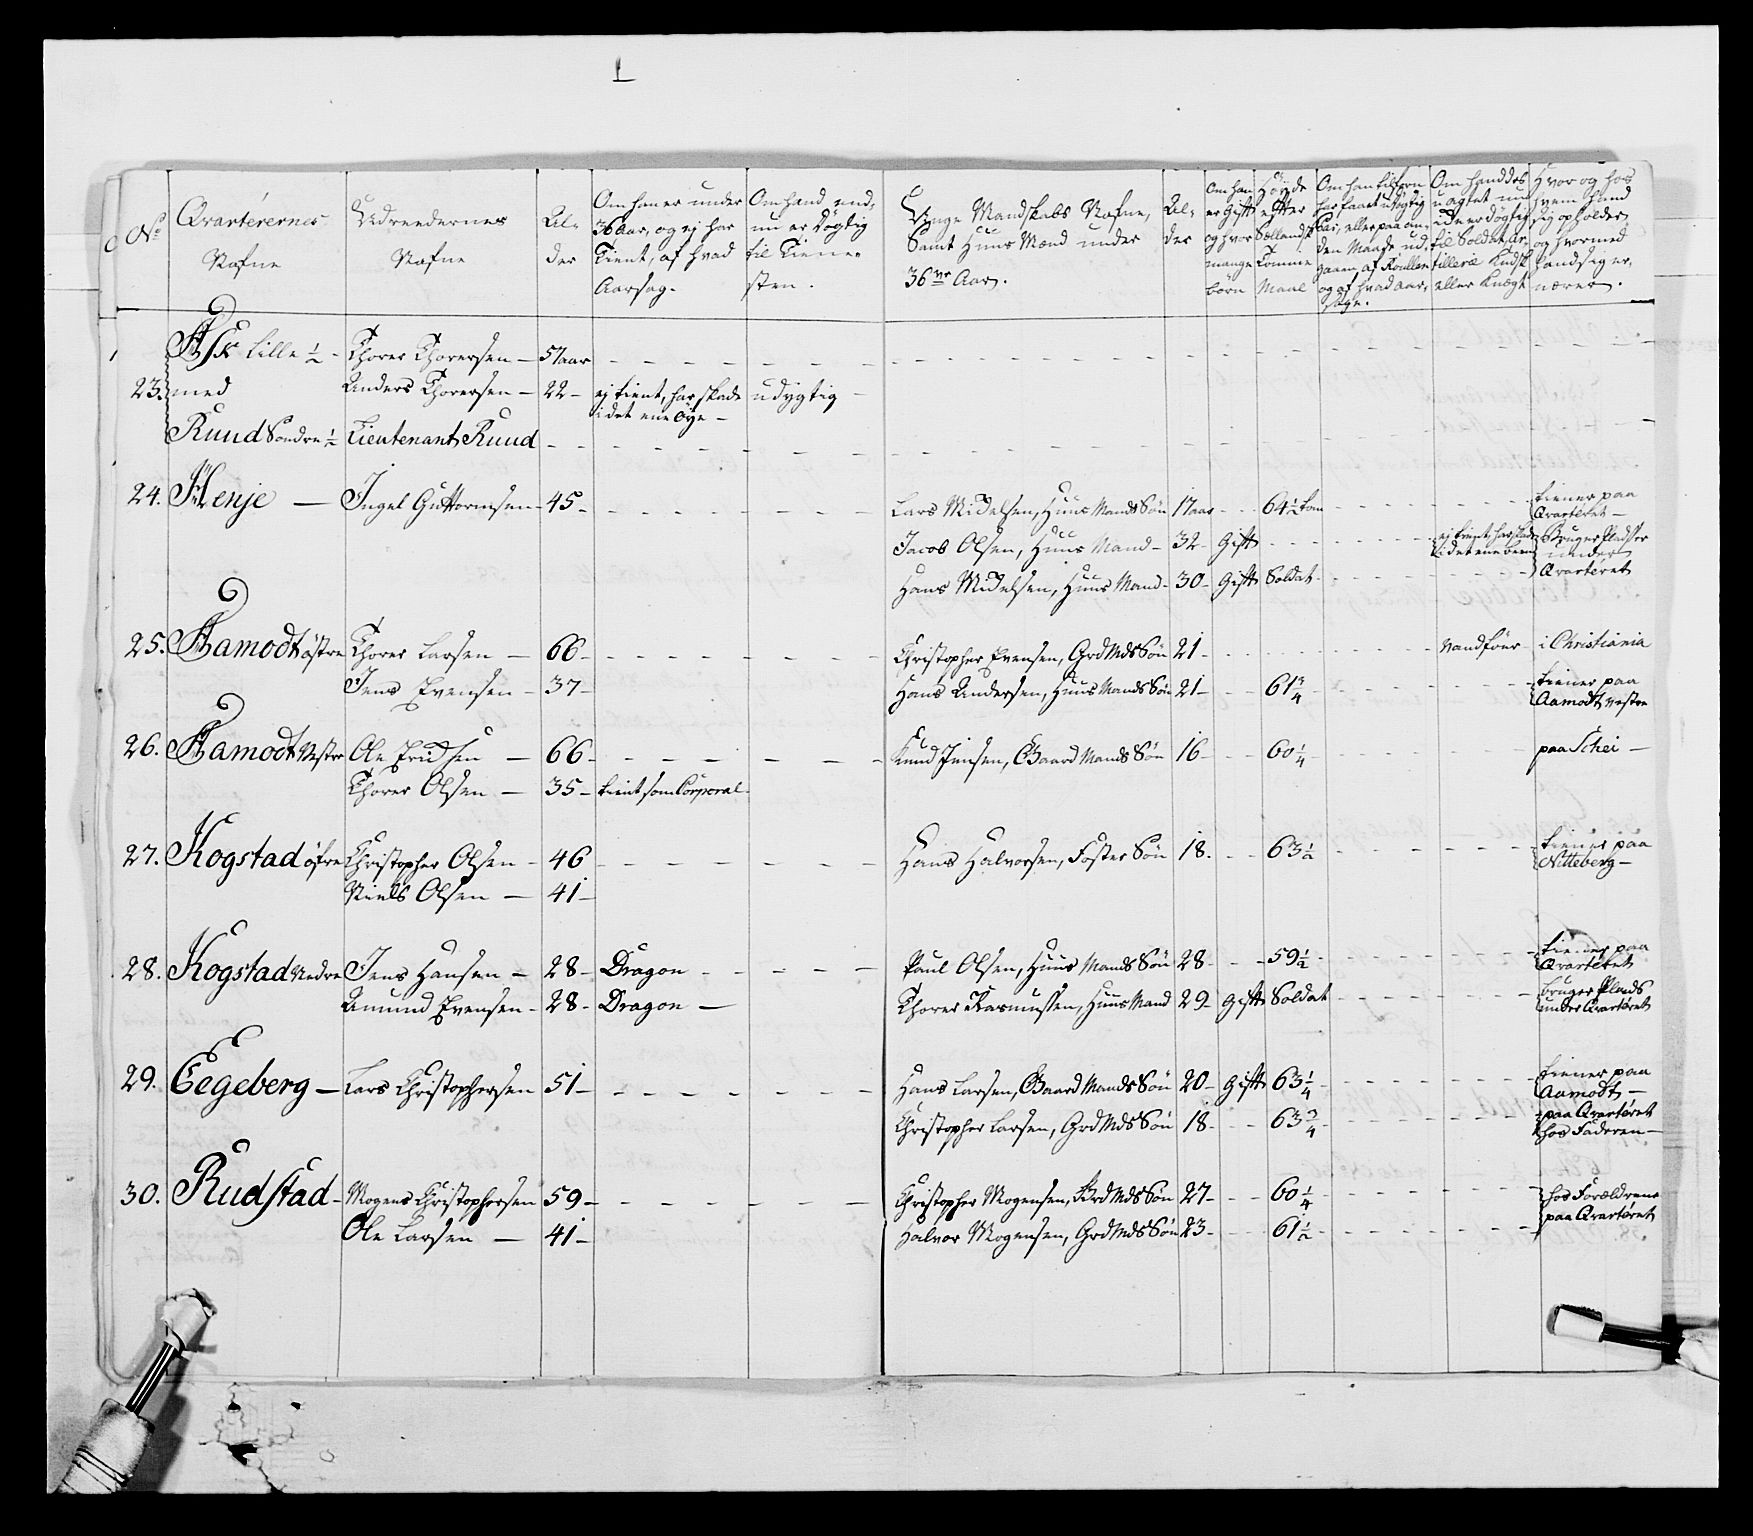 No
Qvarterernes Nafne
Udreedernes Nafne
Alder
Om han er under 36 Aar, og ej har Tient, af hvad Aarsag.
Om hand endnu er Døgtig til Tienesten.
Unge Mandskabs Nafne, Samt Huus Mænd under 36ve Aar.
Alder
Om han er Gift og hvor mange børn
Høyde efter Sællandsk Tomme Maal
Om han tilforn har faaet udygtig Pas, eller paa anden Maade udgaaen af Roullen og af hvad aarsage.
Om hand des uagtet nu ikke er døgtig til Soldat, Artillerie Kudsk eller Knægt
Hvor og hos hvem hand sig opholder, og hvormed hand sig ernærer.
23. Ask lille ½ - Thorer Thorersen — 57 aar
med Anders Thorersen — 22 — ej tient, har skade i det ene Øye — udygtig
Ruud Søndre ½ Lieutenant Ruud
24. Henje — Ingel Guttormsen 45 - Lars Midelsen, Huus Mands Søn 17 aar 64½ tom tiener paa Qvarteret —
Jacob Olsen, Huus Mand — 32 - Gift ej tient, har skade i det ene been Bruger Pladser under Qvarteret
Hans Midelsen, Huus Mand - 30 - Gift Soldat
25. Aamodt østre Thorer Larsen — 66 - Christopher Evensen, Grd Mds Søn 21 - vandføer i Christiania
Jens Evensen - 37 - Hans Andersen, Huus Mands Søn 21 - 61¾ tiener paa Aamodt vestre
26. Aamodt Vestre Ole — 66 - Knud Jensen, Gaard Mands Søn 16 - 60¼ paa Schei —
Thorer Olsen — 35 - tient som Corporal
27. Kogstad øfre Christopher Olsen - 46 - Hans Halvorsen, Foster Søn 18. 63½ tiener paa Nitteberg —
Niels Olsen — 41 -
28. Kogstad Nedre Jens Hansen — 28 - Dragon Paul Olsen, Huus Mands Søn 28 - 59½ tiener paa Qvarteret
Amund Evensen - 28 - Dragon — Thorer Rasmussen, Huus Mand 29 - Gift Soldat bruger Plads under Qvarteret
29. Eegeberg — Lars Christophersen 51 - Hans Larsen, Gaard Mands Søn 20 - Gift 63¼ tiener paa Aamodt —
Christopher Larsen, Grd Mds Søn 18 - 63¾ paa Qvarteret hos Faderen —
30. Rudstad - Mogens Christophersen 59 - Christopher Mogensen, Grd Mds Søn 27 - 60¼ hos Forældrene paa Qvarteret
Ole Larsen — 41 - Halvor Mogensen, Grd Mds Søn 23 - 61½